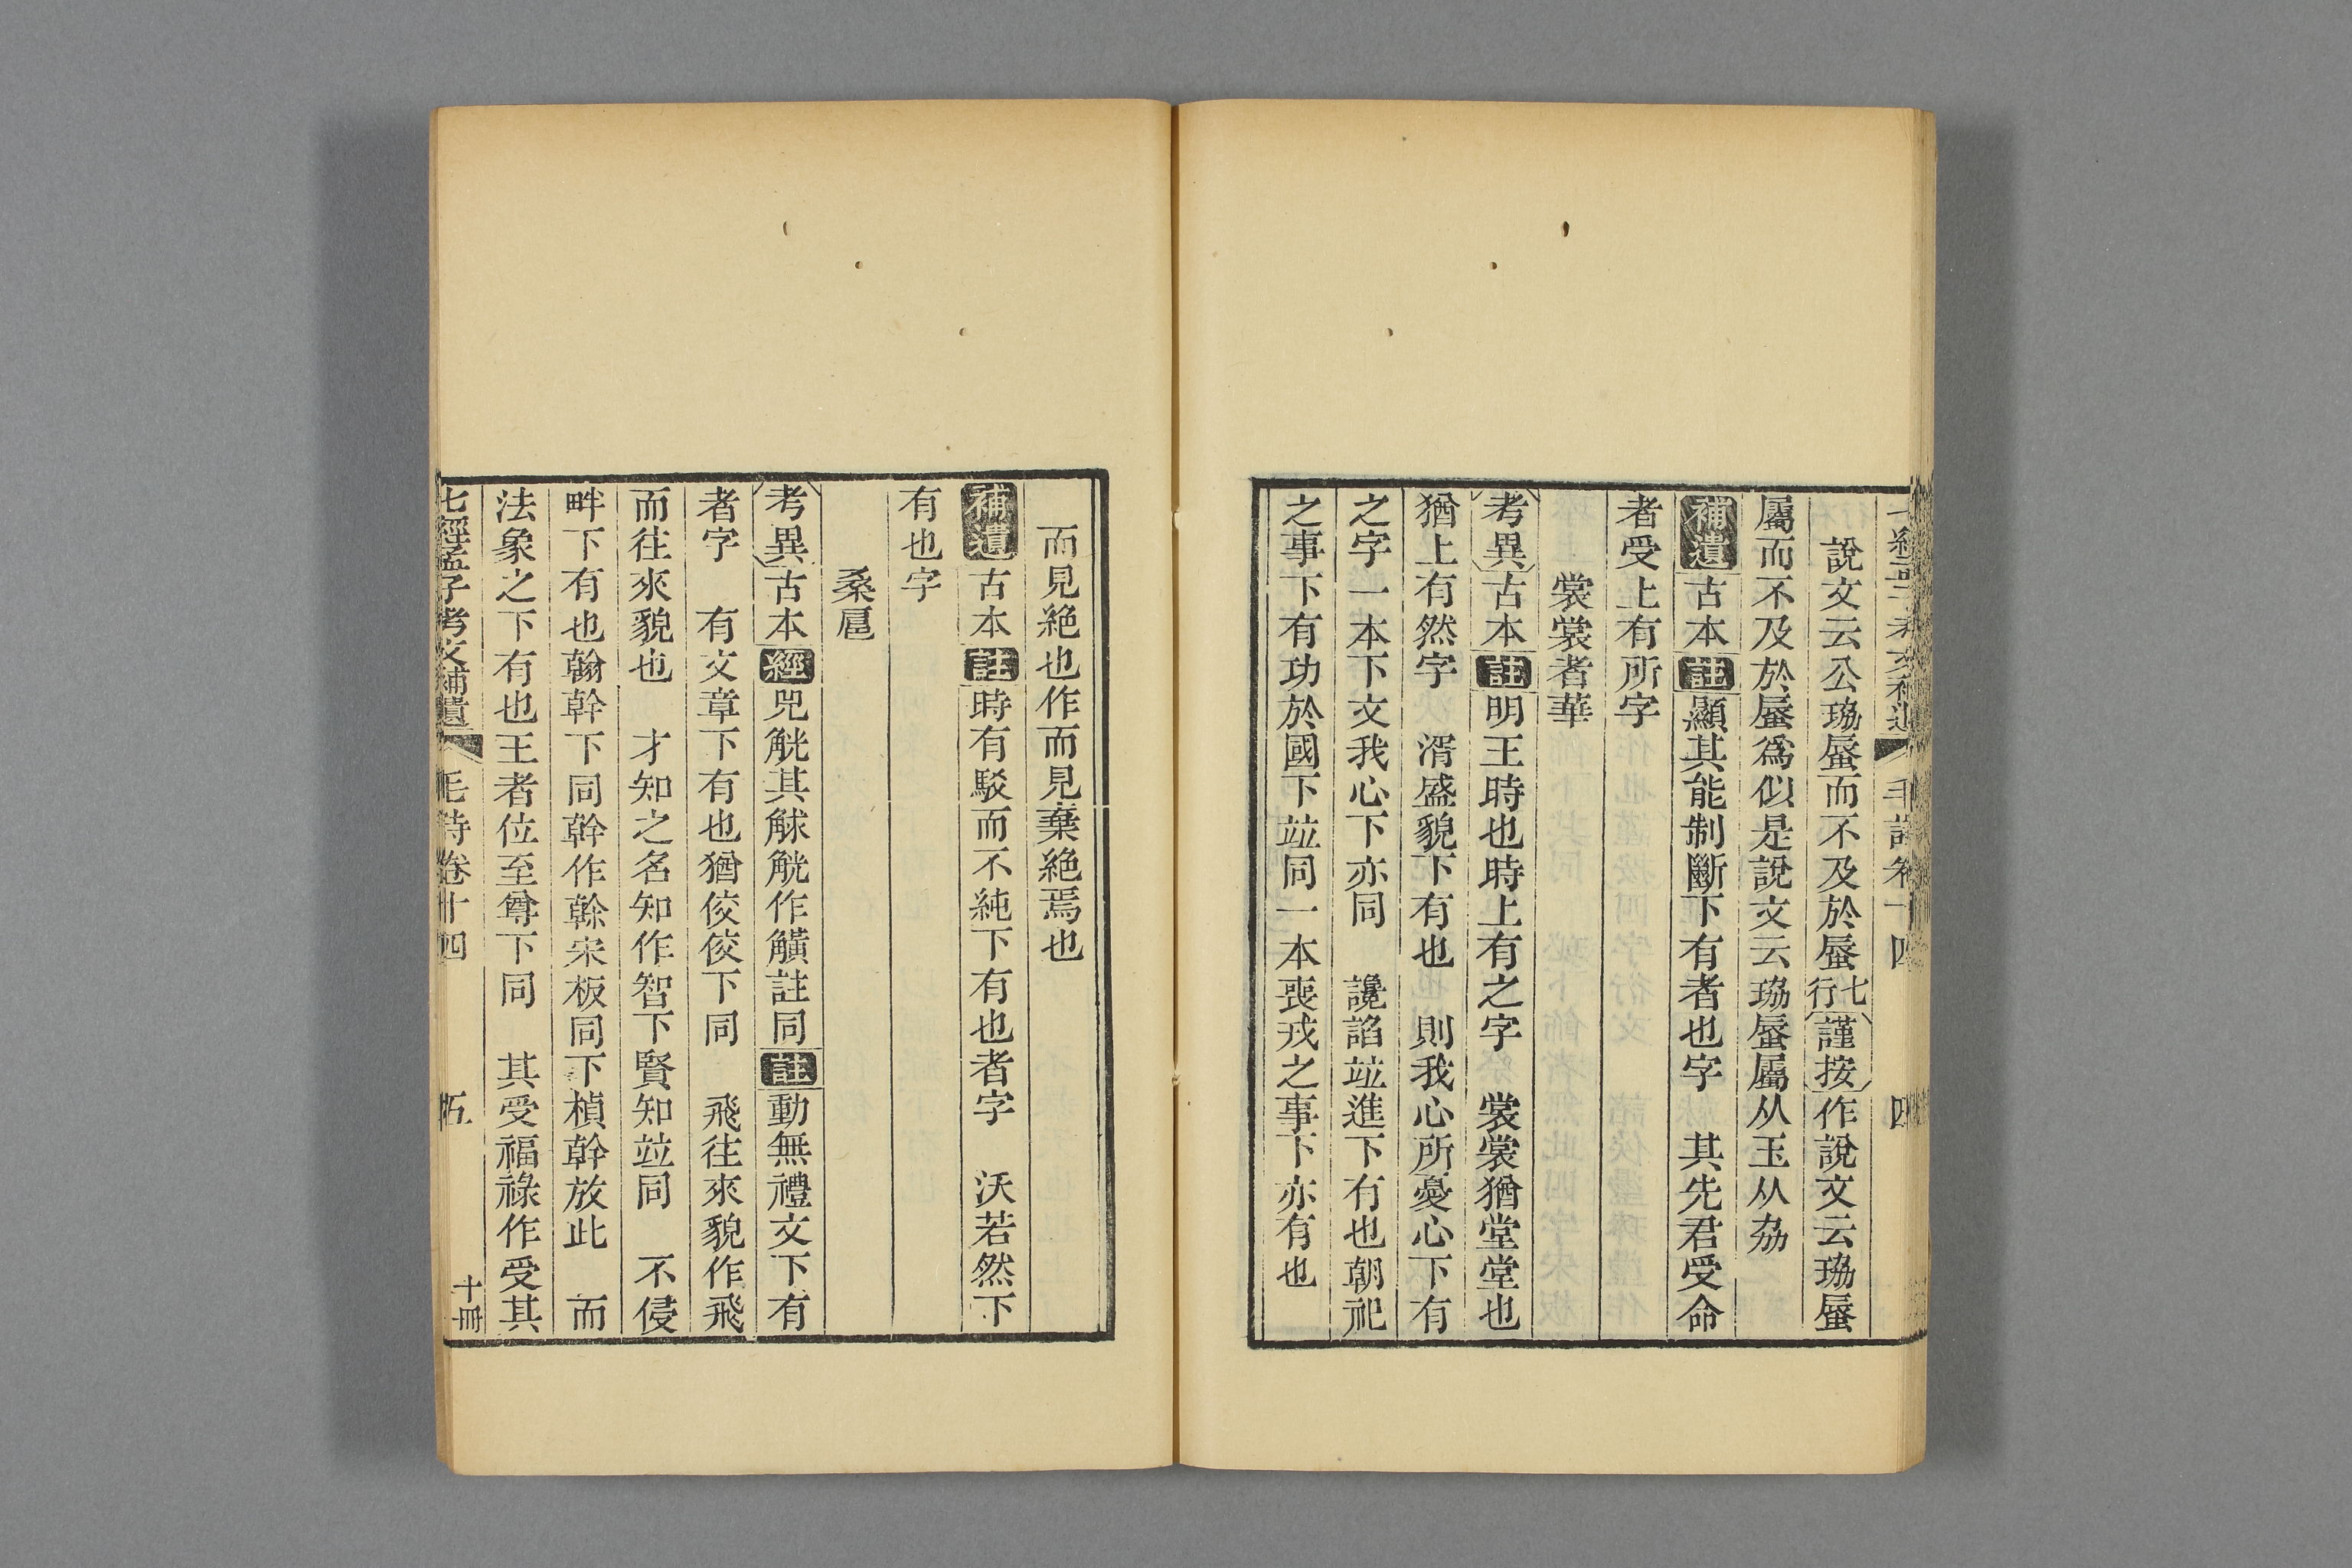 說文云公珕蜃而不及於蜃七行謹按作說文云珕蜃
屬而不及於蜃爲似是說文云珕蜃屬从玉从劦
補遺古本註顯其能制斷下有者也字　其先君受命
者受上有所字
裳裳者華
考異古本註明王時也時上有之字　裳裳猶堂堂也
猶上有然字　湑盛貌下有也　則我心所憂心下有
之字一本下文我心下亦同　讒諂竝進下有也朝祀
之事下有功於國下竝同一本喪戎之事下亦有也
四
而見絶也作而見棄絶焉也
補遺古本註時有駁而不純下有也者字　沃若然下
有也字
桑扈
考異古本經兕觥其觩觥作觵註同註動無禮文下有
者字　有文章下有也猶佼佼下同　飛往來貌作飛
而往來貌也　才知之名知作智下賢知竝同　不侵
畔下有也翰幹下同幹作榦宋板同下楨幹放此　而
法象之下有也王者位至尊下同　其受福祿作受其
七經孟子考文補遺　毛詩卷十四　五　十冊